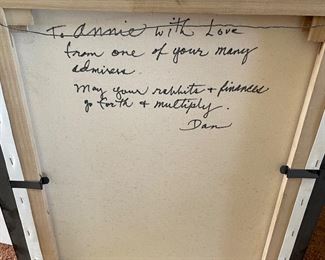 To Annie With Love
from one of your many
admirers.
May your rabbits & finances
go forth & multiply.
Dan